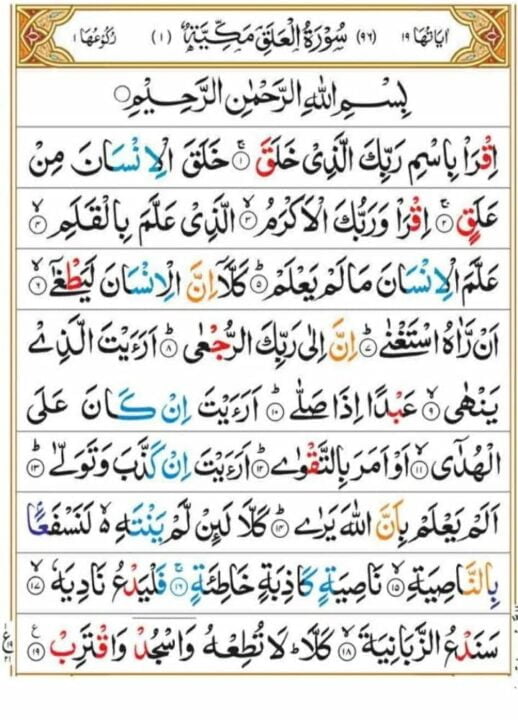 اٰيَاتُهَا ١٩ (٩٦) سُوْرَةُ الْعَلَقِ مَكِّيَّةٌ (١) رُكُوْعُهَا ١
بِسْمِ اللّٰهِ الرَّحْمٰنِ الرَّحِيْمِ
اِقْرَاْ بِاسْمِ رَبِّكَ الَّذِىْ خَلَقَ ۚ‏ ١ خَلَقَ الْاِنْسَانَ مِنْ
عَلَقٍ ۚ‏ ٢ اِقْرَاْ وَرَبُّكَ الْاَكْرَمُ ۙ‏ ٣ الَّذِىْ عَلَّمَ بِالْقَلَمِ ۙ‏ ٤
عَلَّمَ الْاِنْسَانَ مَالَمْ يَعْلَمْ ؕ‏ ٥ كَلَّاۤ اِنَّ الْاِنْسَانَ لَيَطْغٰٓى ۙ‏ ٦
اَنْ رَّاٰهُ اسْتَغْنٰى ؕ‏ ٧ اِنَّ اِلٰى رَبِّكَ الرُّجْعٰى ؕ‏ ٨ اَرَءَيْتَ الَّذِىْ
يَنْهٰى ۙ‏ ٩ عَبْدًا اِذَا صَلّٰى ؕ‏ ١٠ اَرَءَيْتَ اِنْ كَانَ عَلَى
الْهُدٰٓى ۙ‏ ١١ اَوْ اَمَرَ بِالتَّقْوٰى ؕ‏ ١٢ اَرَءَيْتَ اِنْ كَذَّبَ وَتَوَلّٰى ؕ‏ ١٣
اَلَمْ يَعْلَمْ بِاَنَّ اللّٰهَ يَرٰى ؕ‏ ١٤ كَلَّا لَئِنْ لَّمْ يَنْتَهِ ۙ لَنَسْفَعًۢا
بِالنَّاصِيَةِ ۙ‏ ١٥ نَاصِيَةٍ كَاذِبَةٍ خَاطِئَةٍ ۚ‏ ١٦ فَلْيَدْعُ نَادِيَهٗ ۙ‏ ١٧
سَنَدْعُ الزَّبَانِيَةَ ۙ‏ ١٨ كَلَّا ؕ لَا تُطِعْهُ وَاسْجُدْ وَاقْتَرِبْ ‏ ١٩